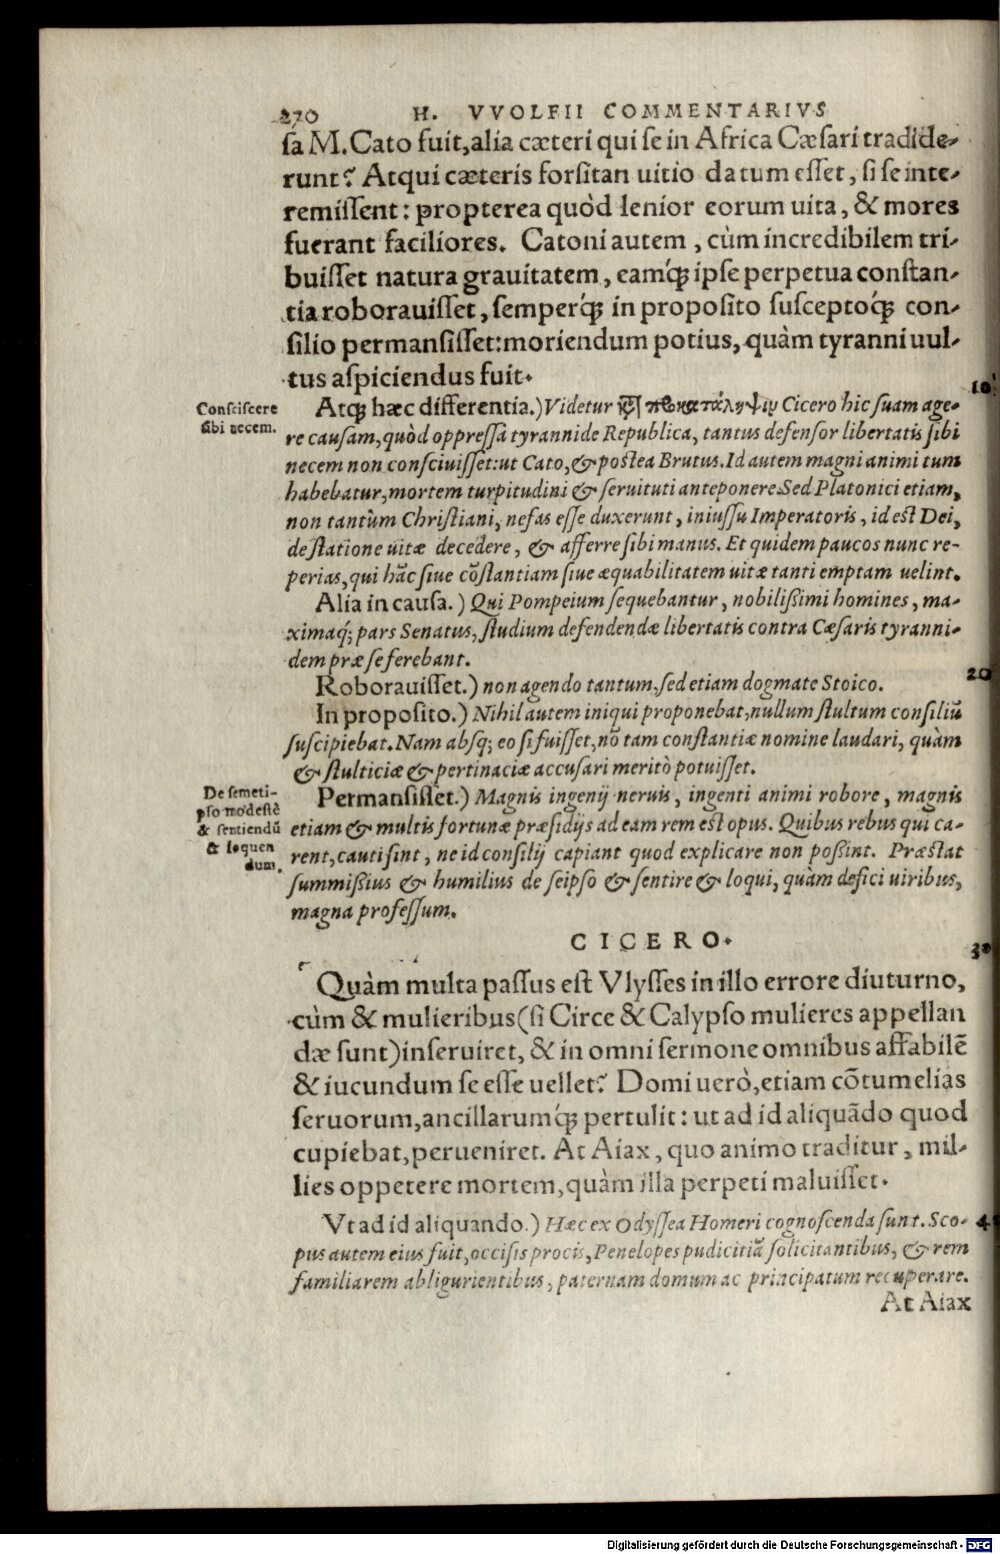 270 H. VVOLFII COMMENTARIVS
sa M. Cato fuit, alia cæteri qui se in Africa Cæsari tradide-
runt? Atqui cæteris forsitan uitio datum esset, si se inte-
remissent: propterea quòd lenior eorum uita, & mores
fuerant faciliores. Catoni autem, cùm incredibilem tri-
buisset natura grauitatem, eamq́ꝫ ipse perpetua constan-
tia roborauisset, semperq́ꝫ in proposito susceptoq́ꝫ con-
silio permansisset: moriendum potius, quàm tyranni uul-
tus aspiciendus fuit.
10
Consciscere
sibi necem.
Atqꝫ hæc differentia.) Videtur Cicero hic suam age-
re causam, quòd oppressa tyrannide Republica, tantus defensor libertatis sibi
necem non consciuisset: ut Cato, & postea Brutus. Id autem magni animi tum
habebatur, mortem turpitudini & seruituti anteponere. Sed Platonici etiam,
non tantùm Christiani, nefas esse duxerunt, iniussu Imperatoris, id est Dei,
de statione uitæ decedere, & afferre sibi manus. Et quidem paucos nunc re-
perias, qui hãc siue cõstantiam siue æquabilitatem uitæ tanti emptam uelint.
Alia in causa.) Qui Pompeium sequebantur, nobilißimi homines, ma-
ximaq́; pars Senatus, studium defendendæ libertatis contra Cæsaris tyranni-
dem præ se ferebant.
20
Roborauisset.) non agendo tantum, sed etiam dogmate Stoico.
In proposito.) Nihil autem iniqui proponebat, nullum stultum consiliũ
suscipiebat. Nam absq; eo si fuisset, nõ tam constantiæ nomine laudari, quàm
& stulticiæ & pertinaciæ accusari meritò potuisset.
De semeti-
pso modestè
& sentiendũ
& loquen
dum.
Permansisset.) Magnis ingenij neruis, ingenti animi robore, magnis
etiam & multis fortunæ præsidijs ad eam rem est opus. Quibus rebus qui ca-
rent, cauti sint, ne id consilij capiant quod explicare non poßint. Præstat
summißius & humilius de seipso & sentire & loqui, quàm defici uiribus,
magna professum.
CICERO.
30
Quàm multa passus est Vlysses in illo errore diuturno,
cùm & mulieribus (si Circe & Calypso mulieres appellan
dæ sunt) inseruiret, & in omni sermone omnibus affabilẽ
& iucundum se esse uellet? Domi uerò, etiam cõtumelias
seruorum, ancillarumq́ꝫ pertulit: ut ad id aliquãdo quod
cupiebat, perueniret. At Aiax, quo animo traditur, mil-
lies oppetere mortem, quàm illa perpeti maluisset.
Vt ad id aliquando.) Hæc ex Odyssea Homeri cognoscenda sunt. Sco-
pus autem eius fuit, occisis procis, Penelopes pudicitiã solicitantibus, & rem
familiarem abligurientibus, paternam domum ac principatum recuperare.
At Aiax
Digitalisierung gefördert durch die Deutsche Forschungsgemeinschaft - DFG